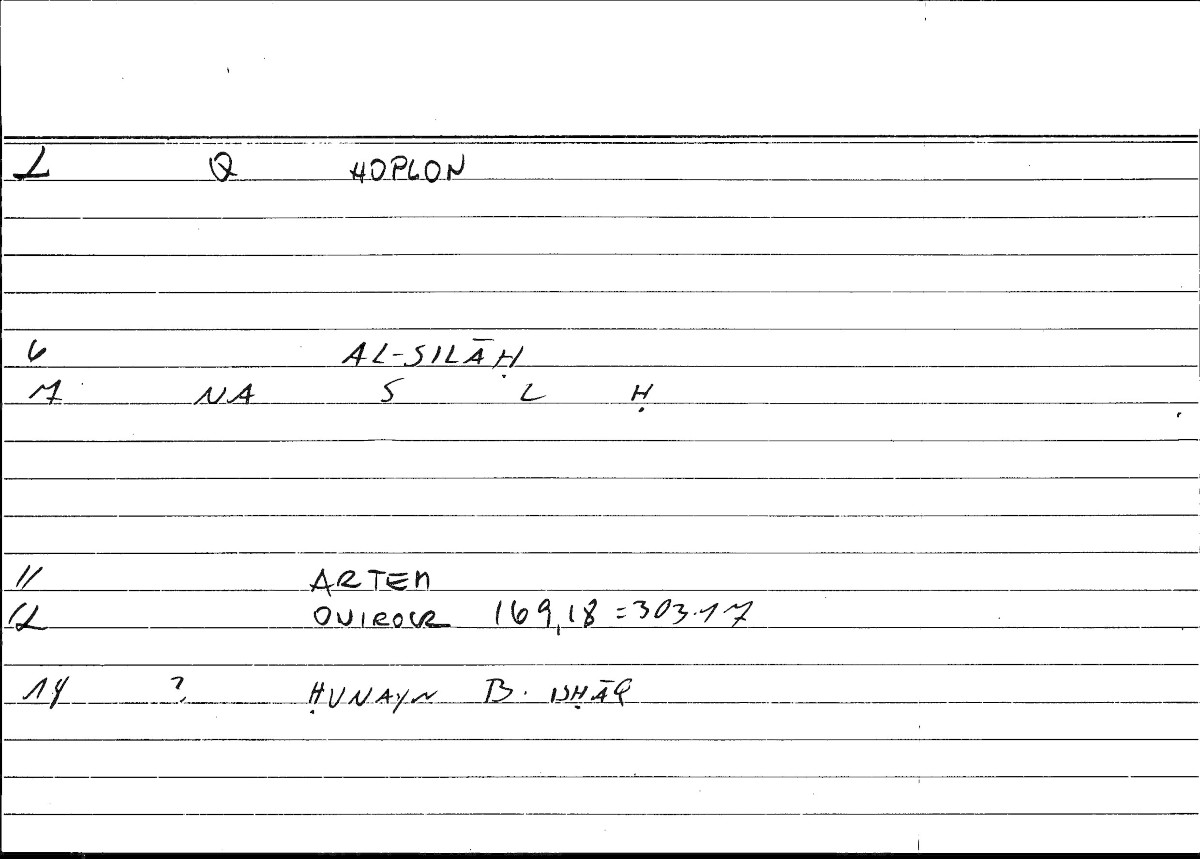 2 Q HOPLON
6 AL-SILĀḤ
7 NA S L Ḥ
11 ARTEM
12 ONIROCR 169,18 = 303.17
14 ? ḤUNAYN B. ISḤĀQ